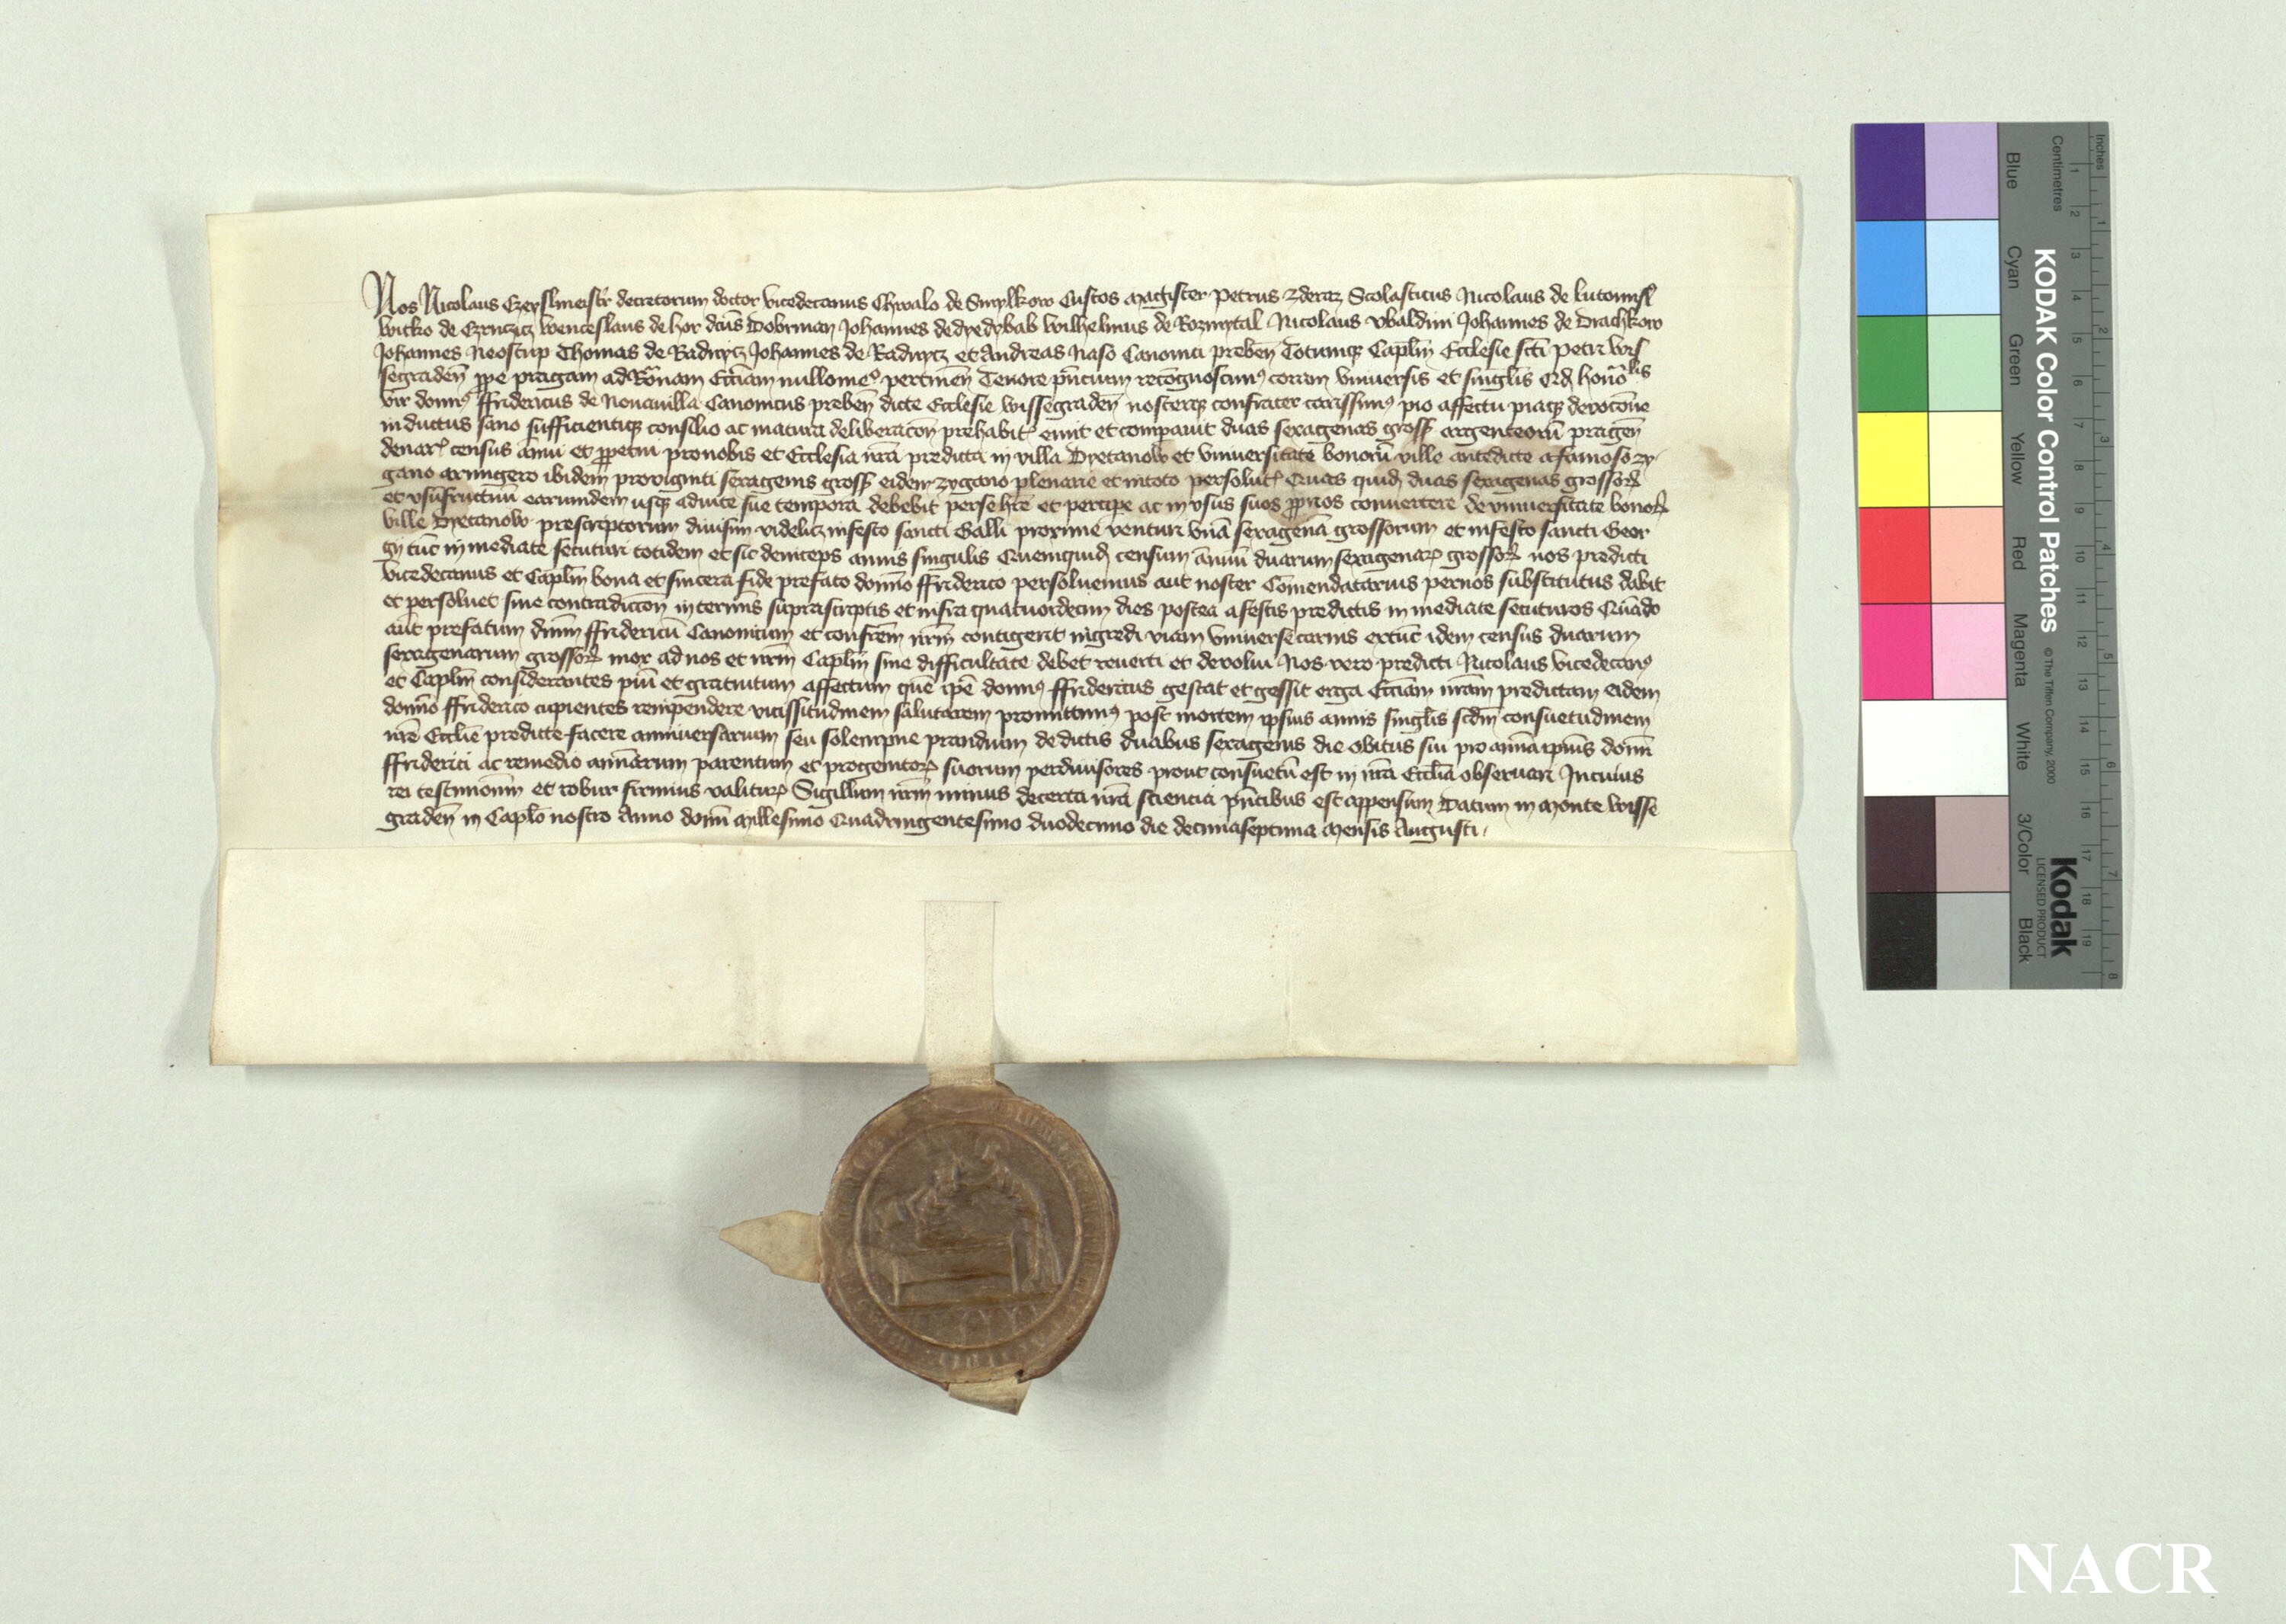 Nos Nicolaus Czeyslmeistr decretorum doctor vicedecanus Chwalo de Smylkow Custos magister Petrus Zderaz Scolasticus Nicolaus de lutomysl
Witko de Czrnczicz Wenceslaus de hor dcūs Dobrman Johannes de dyedybab Wilhelmus de Rozmytal Nicolaus Vbaldini Johannes de Drachkow
Johannes Neostup Thomas de Radnycz Johannes de Radnycz et Andreas Naso Canonici prebeñ Totumqꝫ Caplm̄ Ecclesie scti Petri Wis
segradeñ ꝓpe pragam ad Ro͞nam Ecc͞iam nullo meꝰ pertineñ Tenore pn͞cium recognoscimꝰ coram vniuersis et singl͞is Qꝫ hono͞lis
vir domnꝰ ffridericus de Nouauilla Canonicus prebeñ dicte Ecclesie Wissegradeñ nosterqꝫ confrater carissimꝰ pio affectu piaqꝫ deuoco͞ne
inductus sano sufficientiqꝫ consilio ac matura deliberacoñ prehabit emit et compauit duas sexagenas gross argenteorū prageñ
denar census annui et ꝑpetui pro nobis et Ecclesia nr͞a predicta in villa Dyetanow et vniuersitate bonorū ville antedicte a famoso zy
gano armigero ibidem pro viginti sexagenis gross eidem zygano plenarie et in toto persolut Quas quidꝫ duas sexagenas grossoꝝ
et vsūfructuū earundem usqꝫ ad vite sue tempora debebit per se hr͞e et percipe ac in vsus suos ꝓprios conuertere de vniuersitate bonoꝝ
ville Dyetanow prescriptorum diuisim videlicꝫ in festo sancti Galli proxime venturi vnā sexagenā grossorum et in festo sancti Geor
gij tūc in mediate secuturi totidem et sic deinceps annis singulis Quemquidꝫ censum ān̄uū duarum sexagenaꝝ grossoꝝ nos predicti
vicedecanus et Caplm̄ bona et sincera fide prefato domno ffriderico persoluemus aut noster Co͞mendatarius per nos substitutus dabit
et persoluet sine contradictoñ in term͞is suprascriptis et infra quatuordecim dies postea a festis predictis in mediate secuturos Quādo
aūt prefatum dn͞m ffridericū Canonicum et confrēm nr͞m contigerit ingredi viam vniuerse carnis extūc idem census duarum
sexagenarum grossoꝝ mox ad nos et nr͞m Caplm̄ sine difficultate debet reuerti et deuolui Nos vero predicti Nicolaus vicedecanꝰ
et Caplm̄ considerantes piū et gratuitum affectum quē ip͞e domnꝰ ffridericus gestat et gessit erga Ecc͞iam nr͞am predictam eidem
domno ffriderico cupientes rempendere vicissitudinem salutarem promittimꝰ post mortem ipsius annis singl͞is scd͞m consuetudinem
nr͞e Eccl͞ie predicte facere anniuersarium seu solempne prandium de dictis duabus sexagenis die obitus sui pro anīa ipi͞us domī
ffriderici ac remedio anīarum parentum et progenitoꝝ suorum per diuisores prout consuetū est in nr͞a Eccl͞ia obseruari In cuius
rei testimoniū et robur firmius valituꝝ Sigillum nr͞m minus de certa nr͞a sciencia pn͞tibus est appensum Datum in monte Wisse
gradeñ in Caplo nostro Anno domī Millesimo Quadringentesimo duodecimo die decimaseptima mensis Augusti
Inches
Centimetres
KODAK Color Control Patches
© The Tiffen Company, 2000
Blue Cyan Green Yellow Red Magenta White 3/Color Black
Kodak
LICENSED PRODUCT
1 2 3 4 5 6 7 8 9 10 11 12 13 14 15 16 17 18 19
1 2 3 4 5 6 7 8
NACR